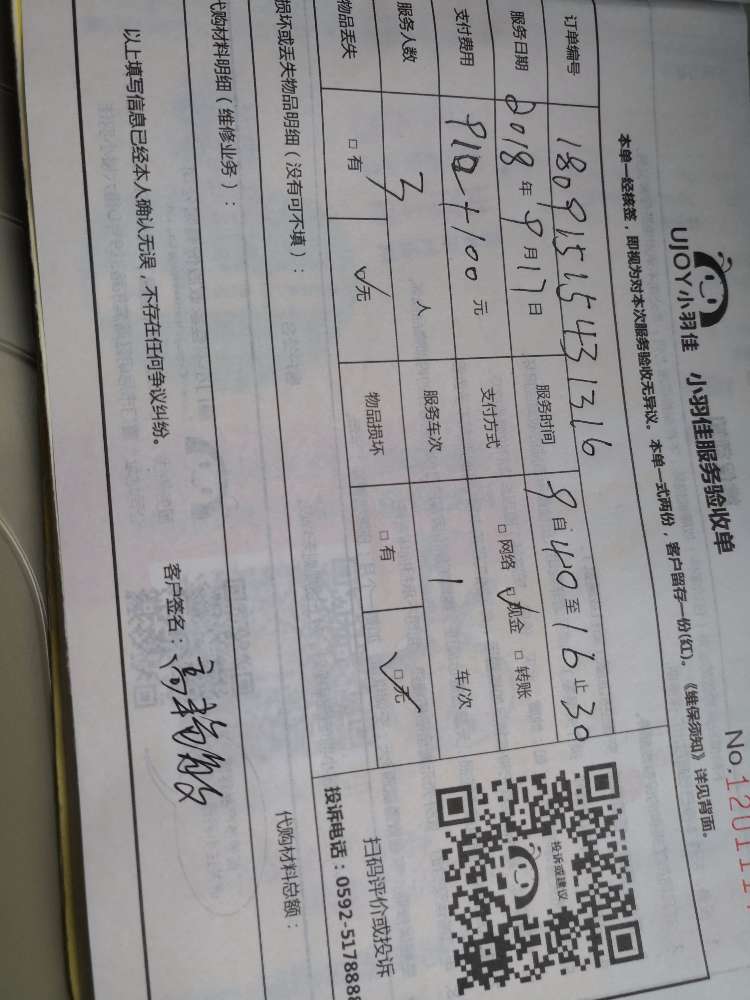 UJOY小羽佳 小羽佳服务验收单
No.120111
本单一经核签，即视为对本次服务验收无异议。本单一式两份，客户留存一份(红)。《维保须知》详见背面。
订单编号 180915154331316
服务日期 2018年9月17日 服务时间 9自40至16止30
支付费用 910+100元 支付方式 □网络 ☑现金 □转账
服务人数 3 人 服务车次 1 车/次
物品丢失 □有 ☑无 物品损坏 □有 ☑无
投诉或建议
扫码评价或投诉
投诉电话：0592-5178888
损坏或丢失物品明细（没有可不填）：
代购材料明细（维修业务）： 代购材料总额：
以上填写信息已经本人确认无误，不存在任何争议纠纷。 客户签名：